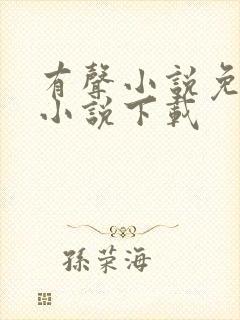 有聲小說免
小說下載
孫荣海